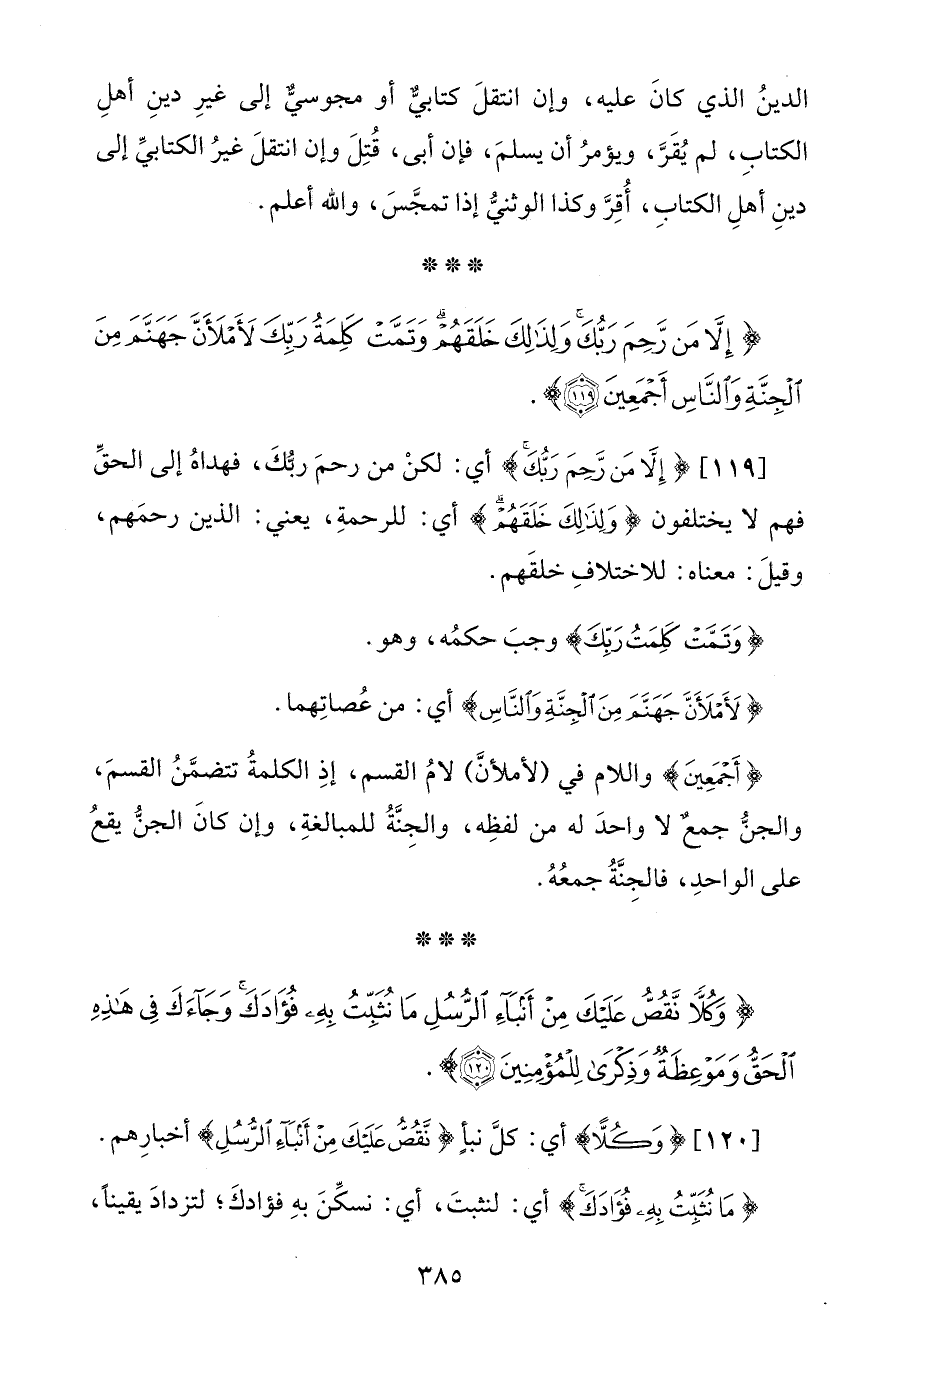 الدينُ الذي كانَ عليه، وإن انتقلَ كتابيٌّ أو مجوسيٌّ إلى غيرِ دينِ أهلِ
الكتابِ، لم يُقَرَّ، ويؤمرُ أن يسلمَ، فإن أبى، قُتِلَ وإن انتقلَ غيرُ الكتابيِّ إلى
دينِ أهلِ الكتابِ، أُقِرَّ وكذا الوثنيُّ إذا تمجَّسَ، والله أعلم.
***
﴿ إِلَّا مَن رَّحِمَ رَبُّكَ ۚ وَلِذَٰلِكَ خَلَقَهُمْ ۗ وَتَمَّتْ كَلِمَةُ رَبِّكَ لَأَمْلَأَنَّ جَهَنَّمَ مِنَ
ٱلْجِنَّةِ وَٱلنَّاسِ أَجْمَعِينَ ١١٩﴾.
[١١٩] ﴿ إِلَّا مَن رَّحِمَ رَبُّكَ ۚ﴾ أي: لكنْ من رحمَ ربُّكَ، فهداهُ إلى الحقِّ
فهم لا يختلفون ﴿ وَلِذَٰلِكَ خَلَقَهُمْ ۗ﴾ أي: للرحمةِ، يعني: الذين رحمَهم،
وقيلَ: معناه: للاختلافِ خلقَهم.
﴿ وَتَمَّتْ كَلِمَتُ رَبِّكَ﴾ وجبَ حكمُه، وهو.
﴿ لَأَمْلَأَنَّ جَهَنَّمَ مِنَ ٱلْجِنَّةِ وَٱلنَّاسِ﴾ أي: من عُصاتِهما.
﴿ أَجْمَعِينَ﴾ واللام في (لأملأنَّ) لامُ القسم، إذِ الكلمةُ تتضمَّنُ القسمَ،
والجنُّ جمعٌ لا واحدَ له من لفظِه، والجِنَّةُ للمبالغةِ، وإن كانَ الجنُّ يقعُ
على الواحدِ، فالجِنَّةُ جمعُهُ.
***
﴿ وَكُلًّا نَّقُصُّ عَلَيْكَ مِنْ أَنۢبَآءِ ٱلرُّسُلِ مَا نُثَبِّتُ بِهِۦ فُؤَادَكَ ۚ وَجَآءَكَ فِى هَٰذِهِ
ٱلْحَقُّ وَمَوْعِظَةٌ وَذِكْرَىٰ لِلْمُؤْمِنِينَ ١٢٠﴾.
[١٢٠] ﴿ وَكُلًّا﴾ أي: كلَّ نبأٍ ﴿ نَّقُصُّ عَلَيْكَ مِنْ أَنۢبَآءِ ٱلرُّسُلِ﴾ أخبارِهم.
﴿ مَا نُثَبِّتُ بِهِۦ فُؤَادَكَ ۚ﴾ أي: لنثبتَ، أي: نسكِّنَ بهِ فؤادكَ؛ لتزدادَ يقيناً،
٣٨٥